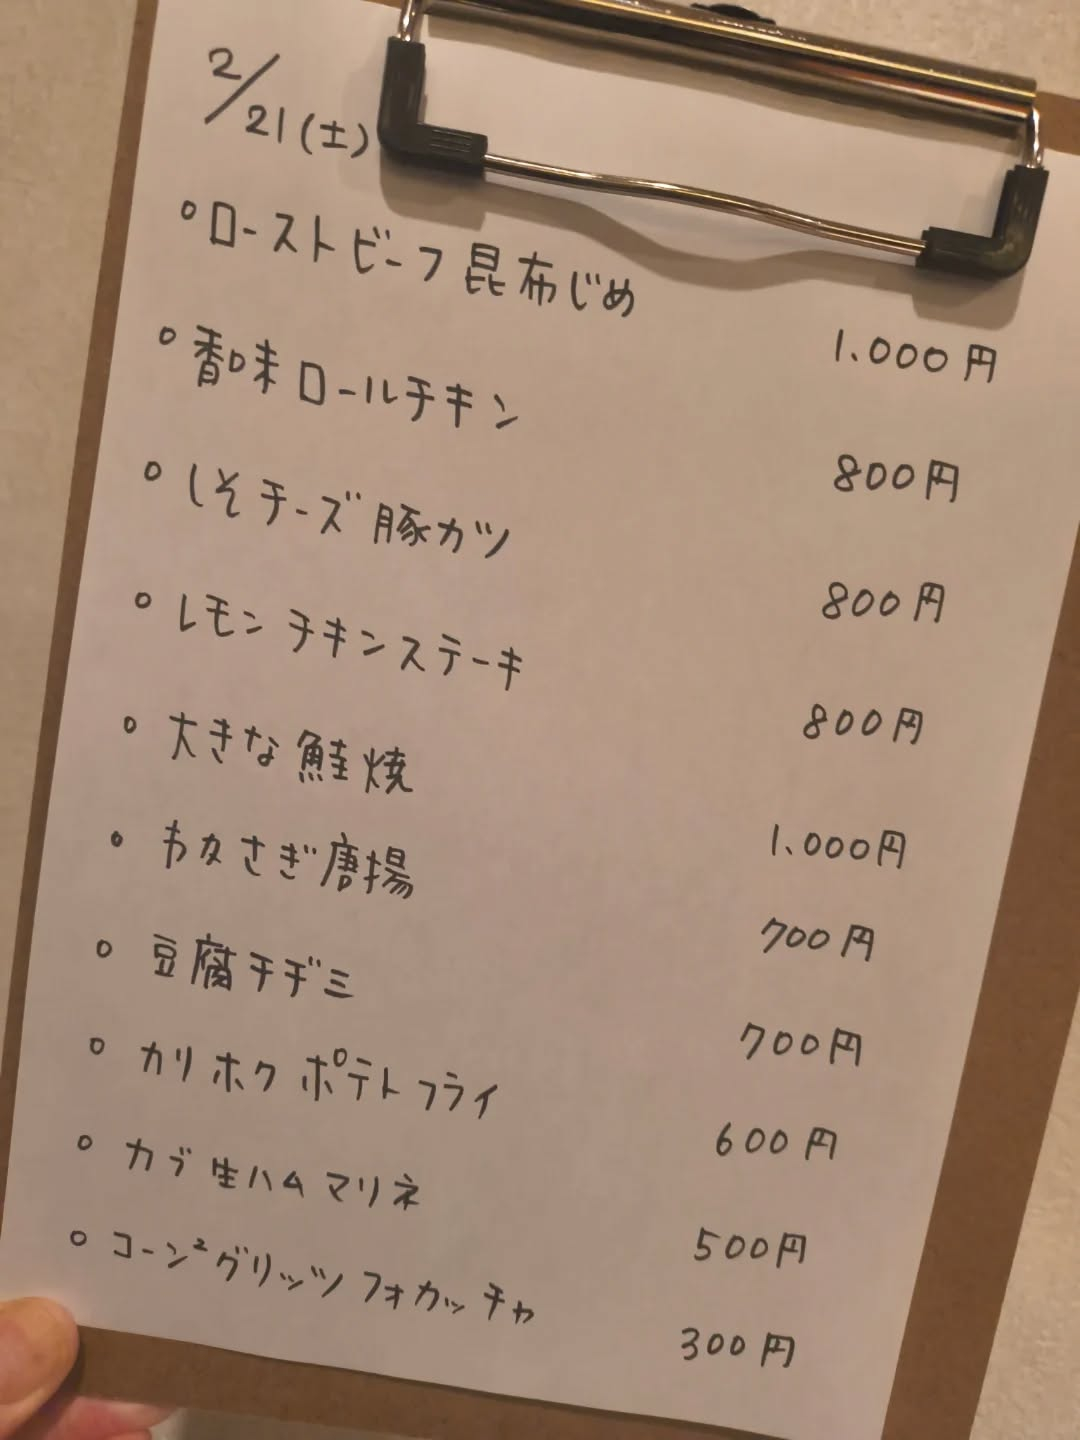 2/21(土)
ローストビーフ昆布じめ 1.000円
香味ロールチキン 800円
しそチーズ豚カツ 800円
レモンチキンステーキ 800円
大きな鮭焼 1.000円
さぎ唐揚 700円
豆腐チヂミ 700円
カリホクポテトフライ 600円
カブ生ハムマリネ 500円
コーン²グリッツフォカッチャ 300円